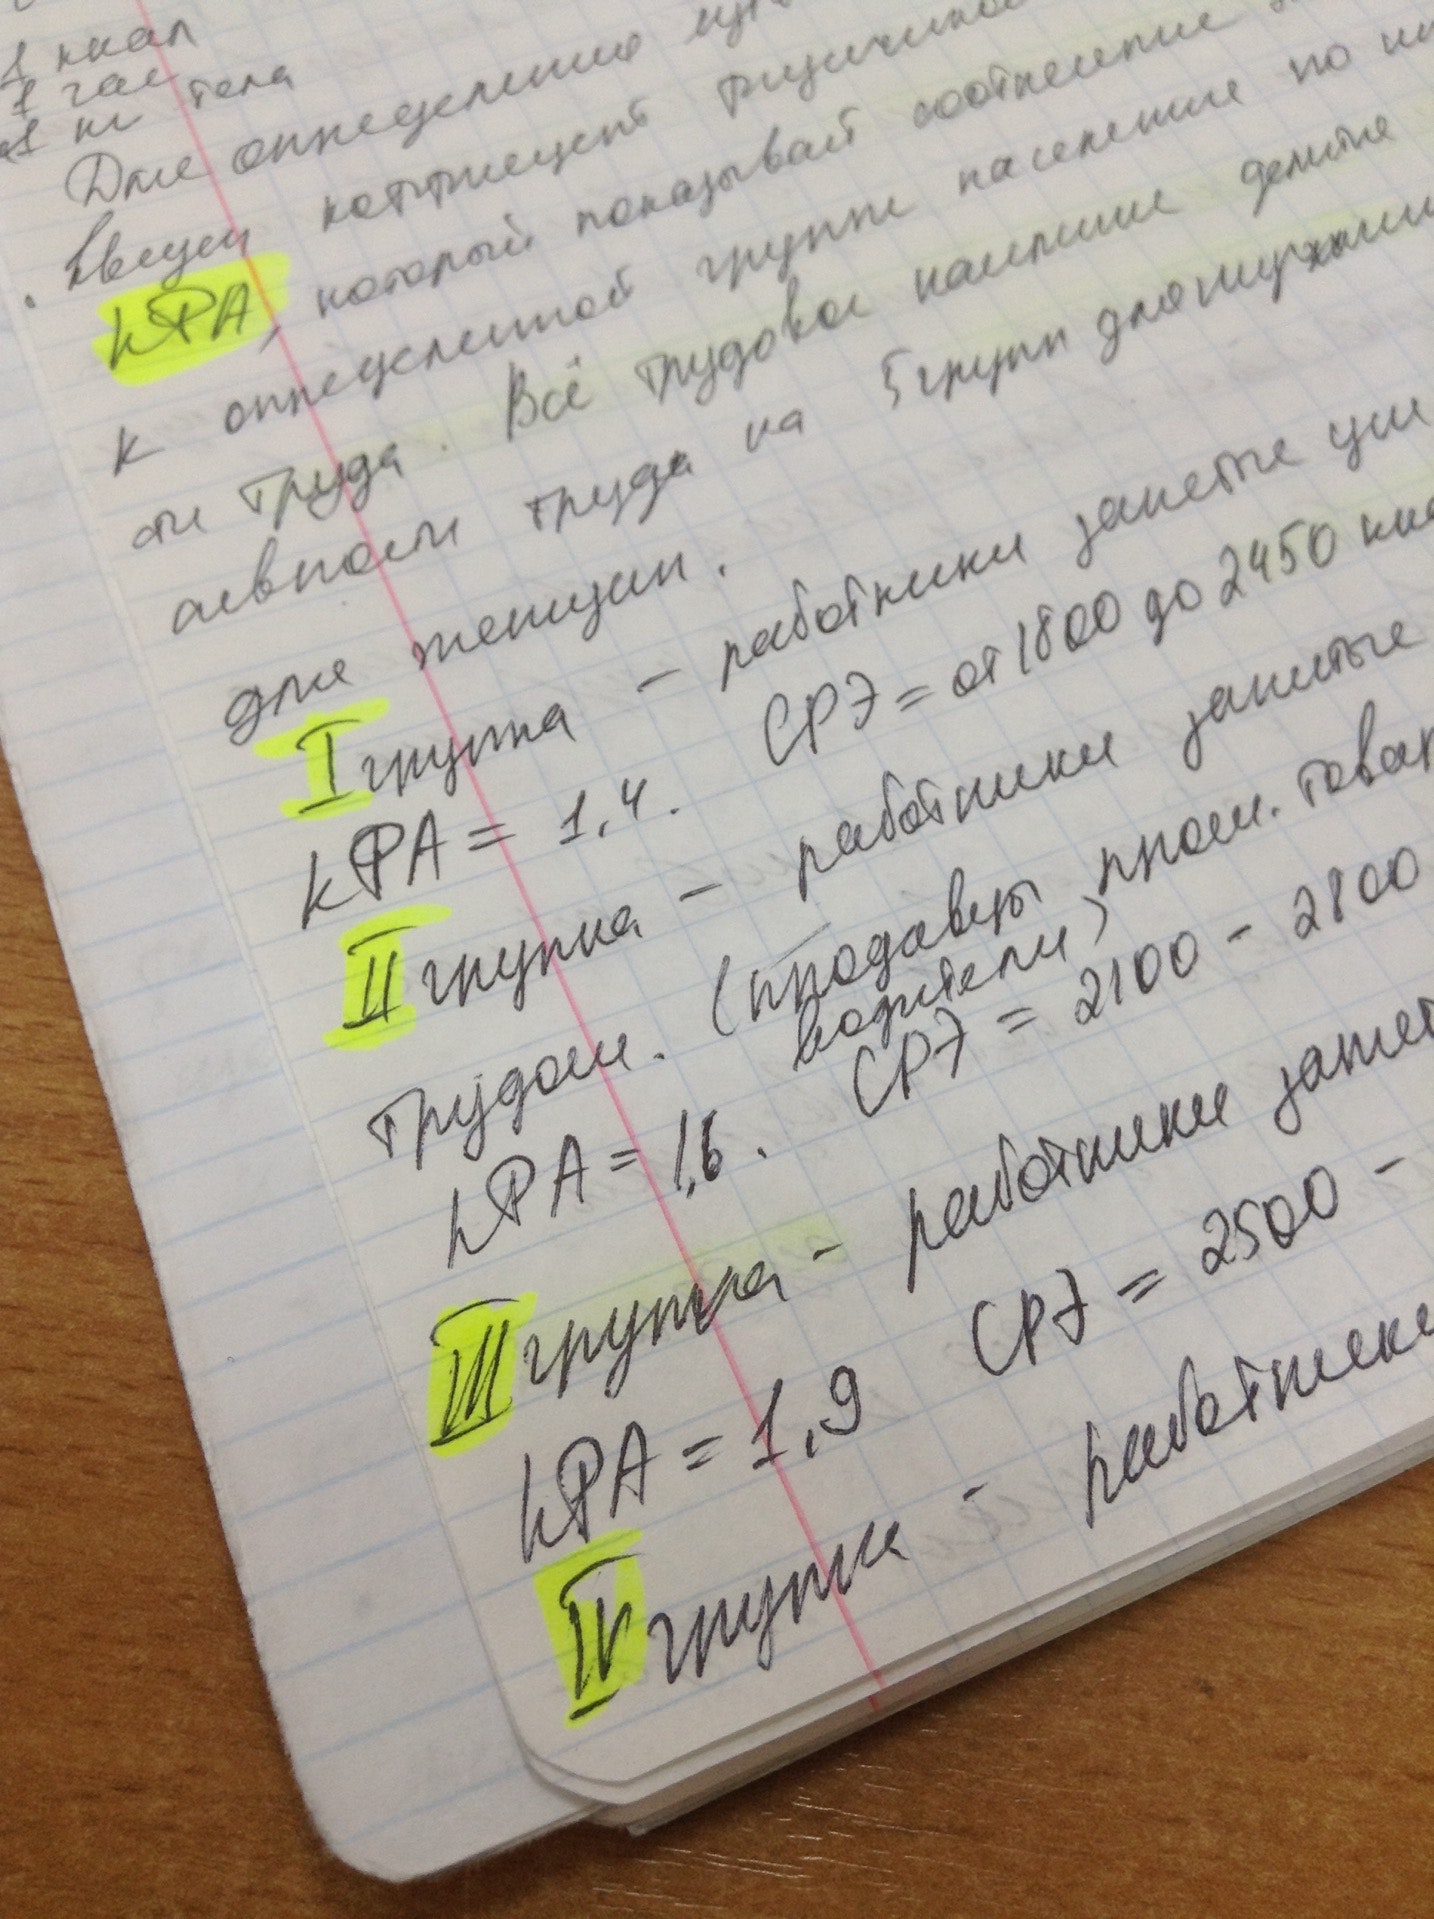 1 ккал
1 час
1 кг тела
Для определения
введен коэффициент физической
КФА, который показывает соотношение
к определенной группе населения по
ти труда. Всё трудовое население делится
сивности труда на 5 групп для мужчин
для женщин.
I группа – работники занятые ум
КФА = 1,4. СРЭ = от 1800 до 2450 кка
II группа – работники занятые
трудом. (продавцы пром. товар
водители)
КФА = 1,6. СРЭ = 2100 - 2800
III группа – работники занят
КФА = 1,9 СРЭ = 2500 -
IV группа - работники